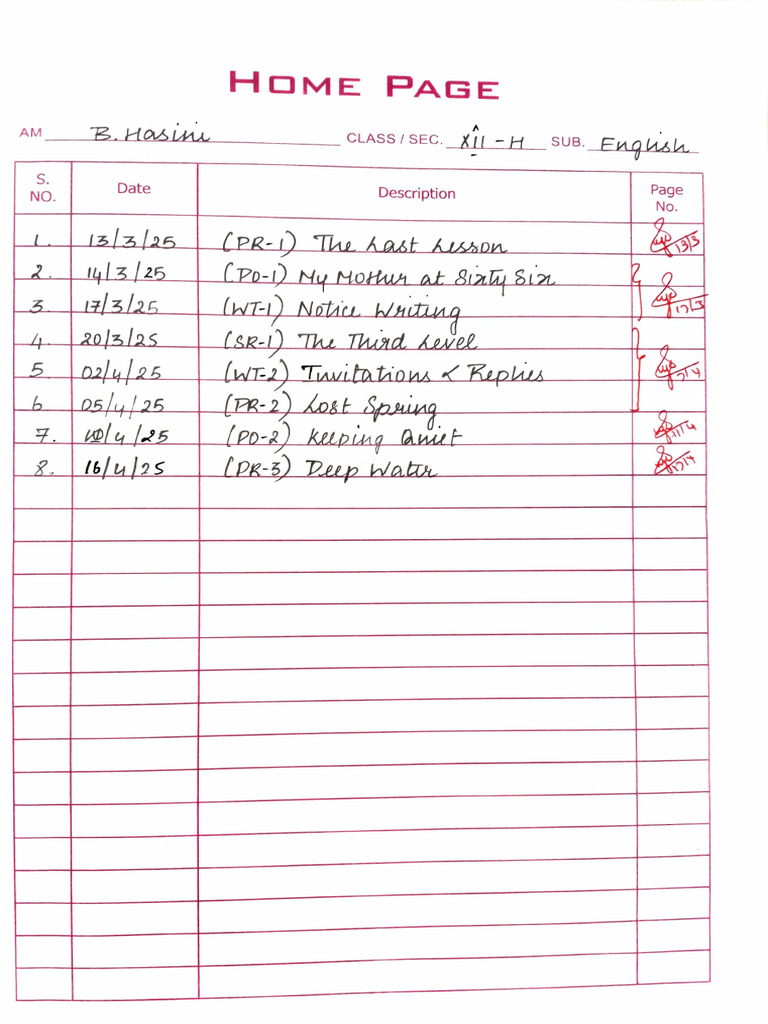 HOME PAGE
AM B. Hasini CLASS / SEC. XII - H SUB. English
S. NO. Date Description Page No.
1. 13/3/25 (PR-1) The Last Lesson 13/3
2. 14/3/25 (PO-1) My Mother at Sixty Six
3. 17/3/25 (WT-1) Notice Writing 17/3
4. 20/3/25 (SR-1) The Third Level
5 02/4/25 (WT-2) Invitations & Replies
6 05/4/25 (PR-2) Lost Spring
7. 10/4/25 (PO-2) Keeping Quiet 11/4
8. 16/4/25 (PR-3) Deep Water